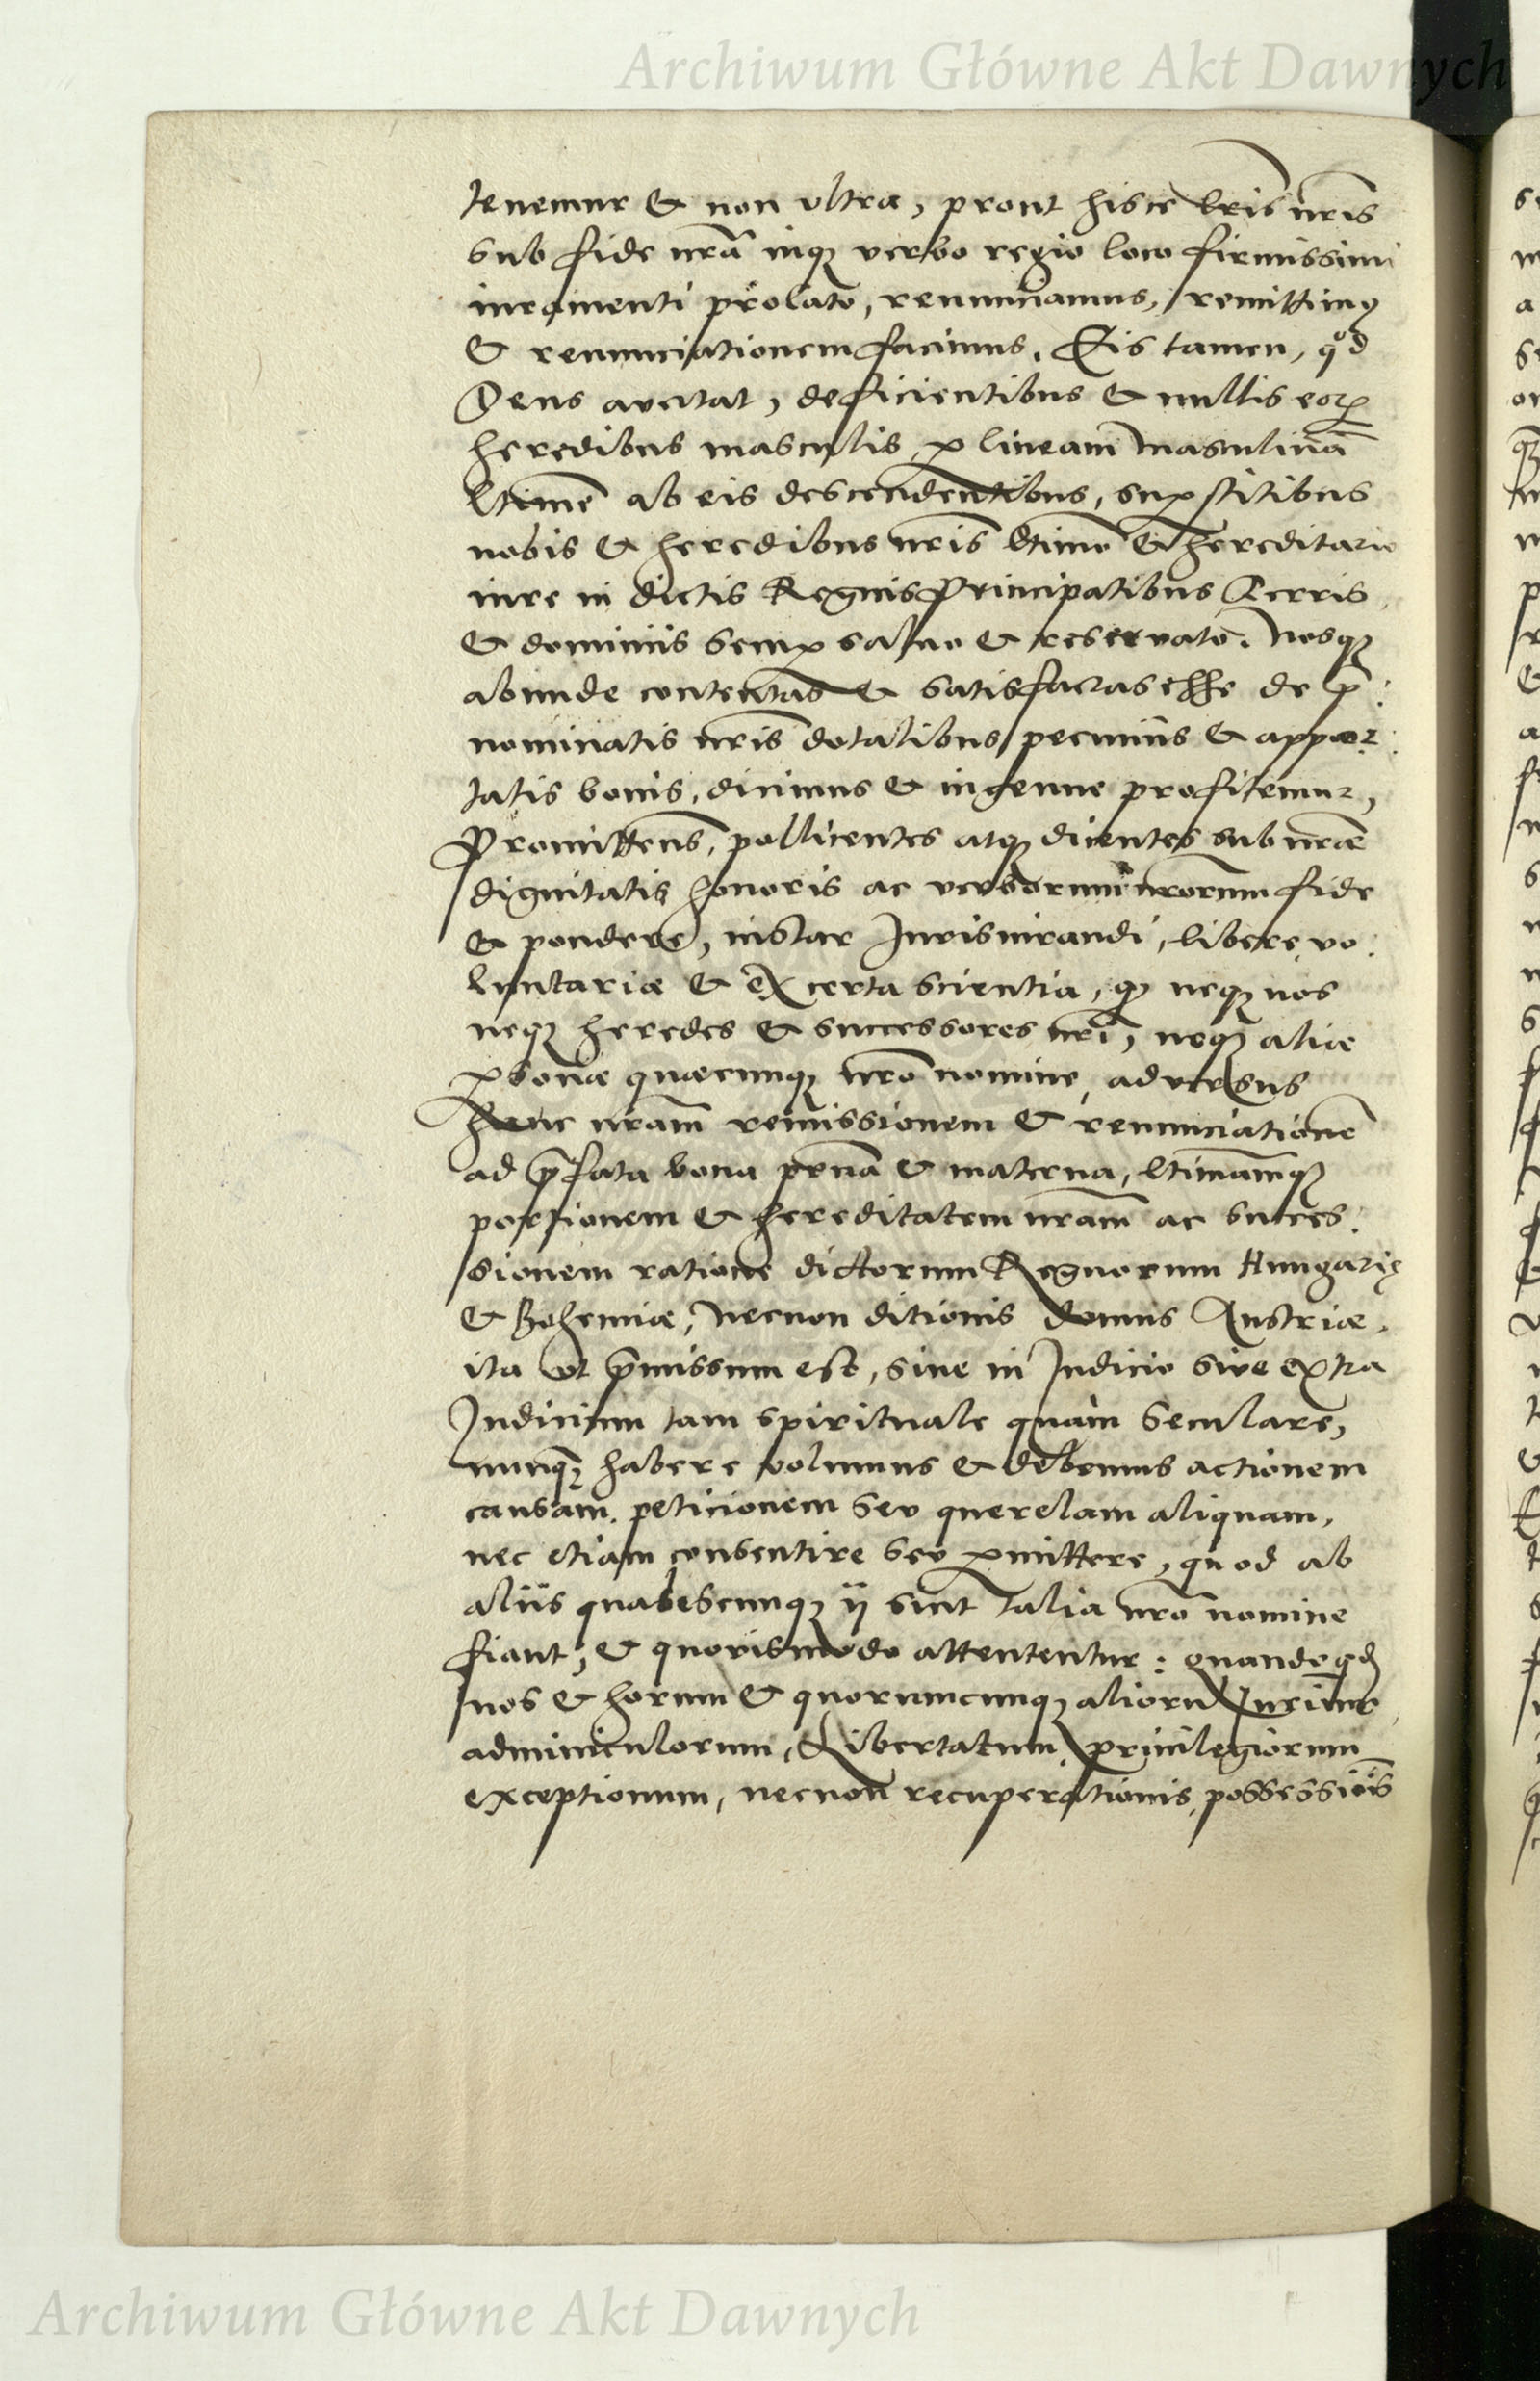 Archiwum Główne Akt Dawnych
tenemur & non ultra, prout hisce lr̃is nr̃is
sub fide nr̃a inq̃ verbo regio loco firmissimi
iuramenti prolato, renunciamus, remittimꝰ
& renunciationem facimus. Eis tamen, qod
Deus avertat, deficientibus & nullis eoꝝ
heredibus masculis ꝑ lineam masculinā
ltime ab eis descendentibus, suꝑstitibus
nobis & heredibus nr̃is ltimo & hereditario
iure in dictis Regnis Principatibus Terris
& dominiis semꝑ salvo & reservato. Nosq̃
abunde contentas & satisfactas esse de p̄:
nominatis nr̃is dotalibus pecuniis & appor:
tatis bonis, dicimus & ingenue profitemur,
Promittens, pollicentes atq̃ dicentes sub nr̃ae
dignitatis honoris ac verborum nr̃orum fide
& pondere, instar Jurisiurandi, libere, vo:
luntariae & ex certa scientia, qꝫ neq̃ nos
neq̃ heredes & successores nr̃i, neq̃ aliae
ꝑsonae quaecunq̃ nr̃o nomine, adversus
hanc nr̃am remissionem & renunciationē
ad p̄fata bona pr̃na & materna, ltimamq̃
portionem & hereditatem nr̃am ac succes:
sionem ratione dictorum Regnorum Hungarię
& Bohemiae, necnon ditionis domus Austriae,
ita ut p̄missum est, sive in Judicio sive extra
Judicium tam spirituale quam seculare,
nunq̃ habere volumus & debemus actionem
causam, peticionem seu querelam aliquam,
nec etiam consentire seu ꝑmittere, quod ab
aliis quabescunq̃ ij sint talia nr̃o nomine
fiant, & quovismodo attententur: quandoqd̃
nos & horum & quorumcunq̃ aliorū Jurium
adminiculorum, Libertatum, privilegiorum
exceptionum, necnon recuperationis, possessiõis
Archiwum Główne Akt Dawnych